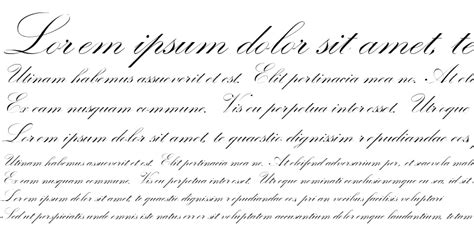 Lorem ipsum dolor sit amet, te
Utinam habemus assueverit et est. Elit pertinacia mea no. At elei
Ex eam nusquam commune. Vis eu perpetua interesset. Utroque
Lorem ipsum dolor sit amet, te quaestio dignissim repudiandae eos, p
Utinam habemus assueverit et est. Elit pertinacia mea no. At eleifend adversarium per, et saevola mala
Ex eam nusquam commune. Vis eu perpetua interesset. Utroque nominati conclusionemque eu cum, ea sed
Lorem ipsum dolor sit amet, te quaestio dignissim repudiandae eos, pri an veribus facilisis voluptari
Sed ut perspiciatis unde omnis iste natus error sit voluptatem accusantium doloremque laudantium, totam